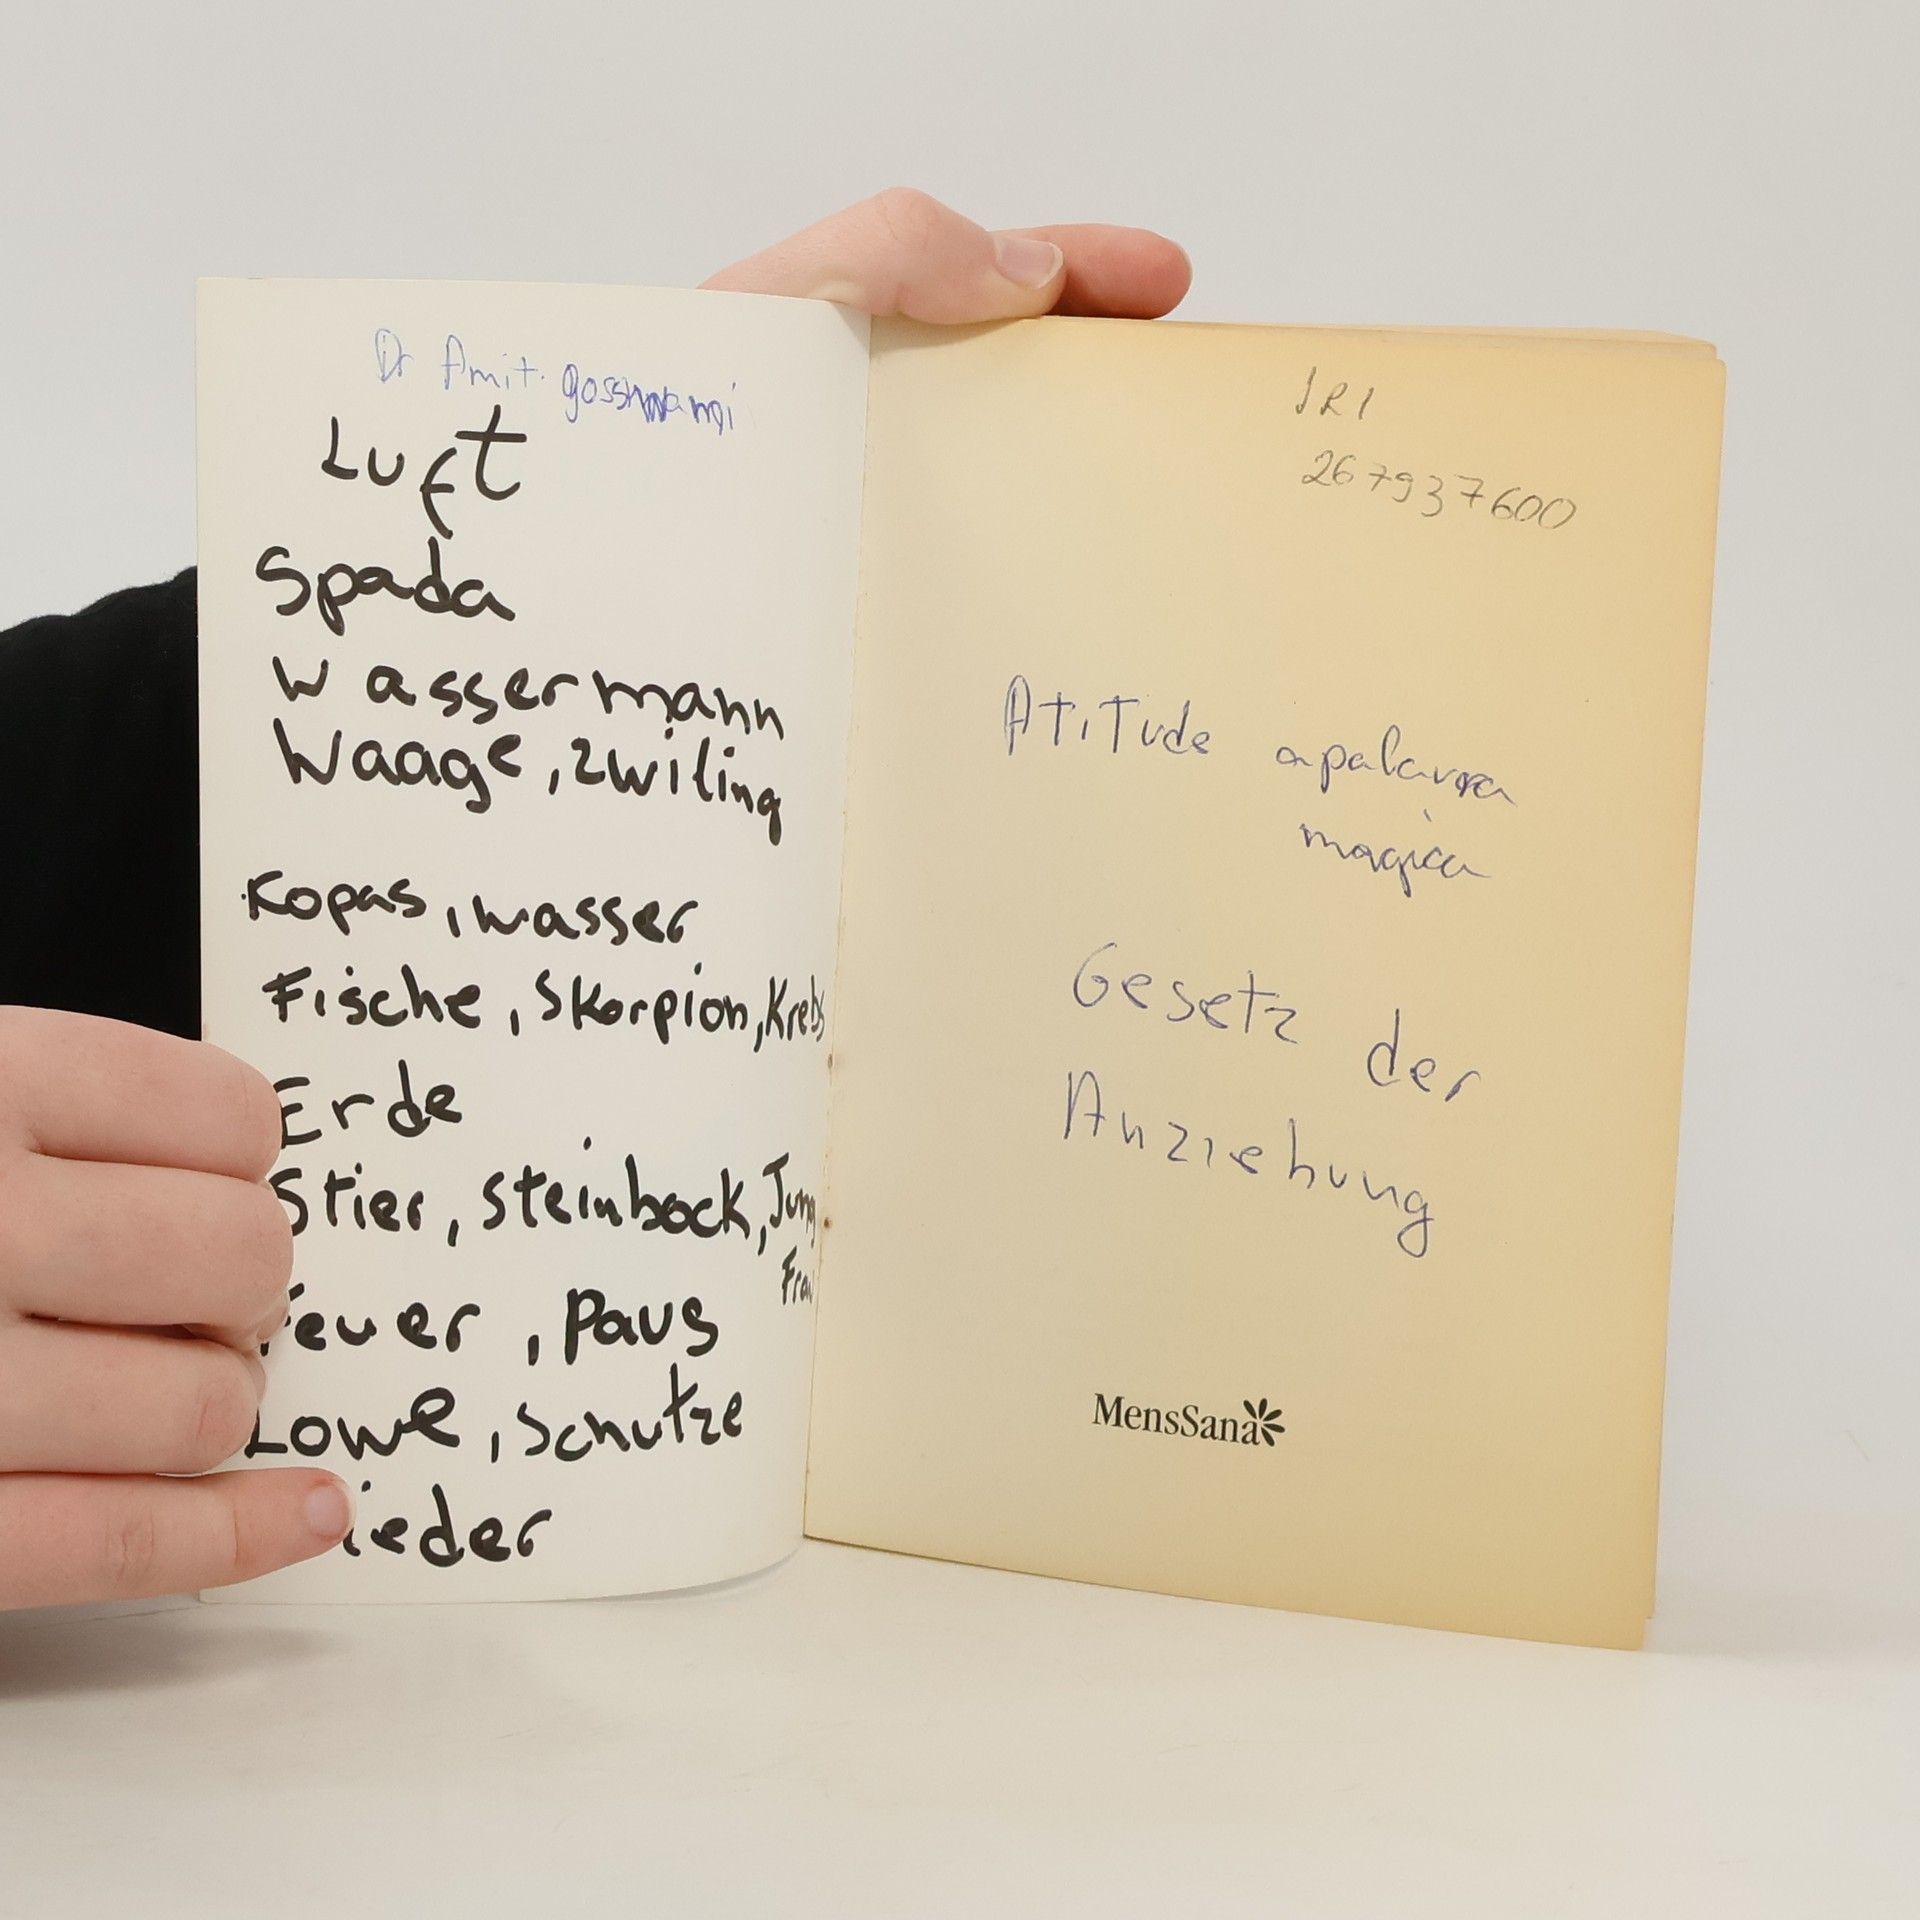 Dr Amit. gosswami
Luft
Spada
Wassermann
Waage, zwiling
Kopas, wasser
Fische, Skorpion, Krebs
Erde
Stier, steinbock, Jung
Frau
Feuer, paus
Lowe, schutze
ieder
JRI
267937600
Atitude apalavra
magica
Gesetz der
Anziehung
MensSana